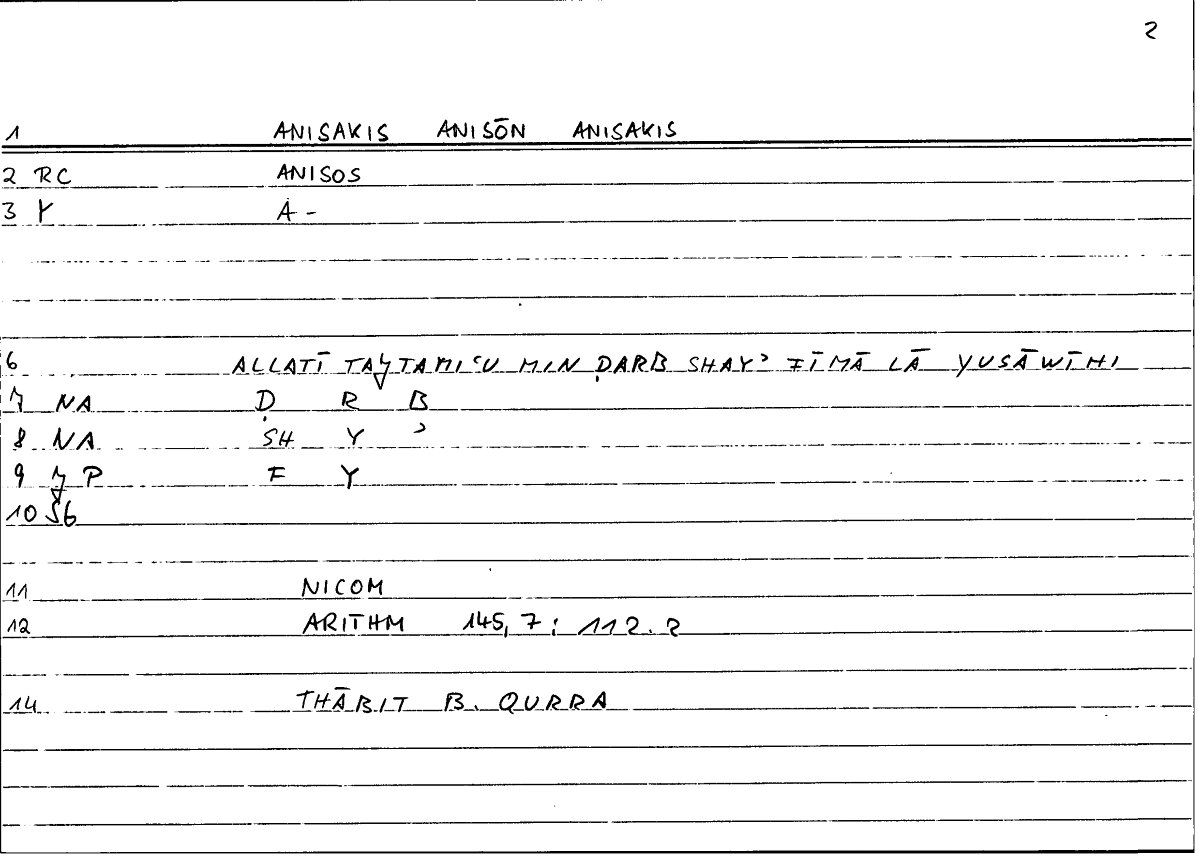 2
1 ANISAKIS ANISŌN ANISAKIS
2 RC ANISOS
3 Y A-
6 ALLATĪ TAJTAMIʿU MIN ḌARB SHAYʾ FĪMĀ LĀ YUSĀWĪHI
7 NA Ḍ R B
8 NA SH Y ʾ
9 J P F Y
10 S6
11 NICOM
12 ARITHM 145,7 : 112.2
14 THĀBIT B. QURRA